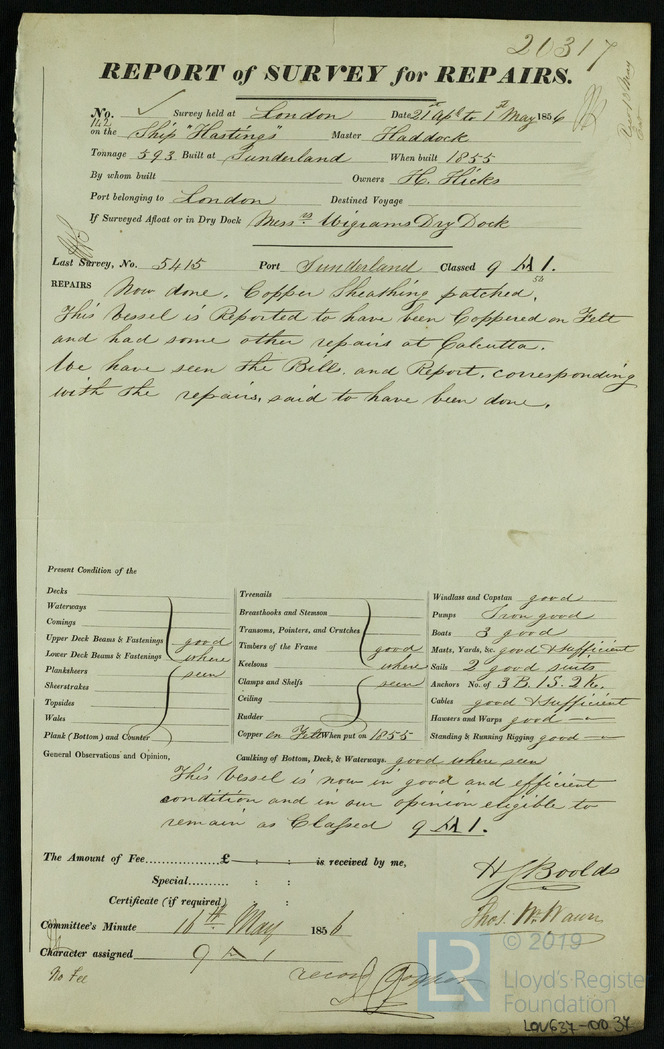 20317
REPORT of SURVEY for REPAIRS.
No. ✓ Survey held at London Date 21st Apl to 1st May 1856
142
on the Ship "Hastings" Master Haddock
Tonnage 593 Built at Sunderland When built 1855
By whom built Owners H. Hicks
Port belonging to London Destined Voyage
If Surveyed Afloat or in Dry Dock Messrs Wigrams Dry Dock
Last Survey, No. 5415 Port Sunderland Classed 9 A 1.
56
REPAIRS Now done. Copper Sheathing patched.
This Vessel is Reported to have been Coppered on Felt
and had some other repairs at Calcutta.
We have seen the Bills. and Report. corresponding
with the repairs, said to have been done.
Present Condition of the
Decks
Waterways
Comings
Upper Deck Beams & Fastenings good
Lower Deck Beams & Fastenings where
Planksheers seen
Sheerstrakes
Topsides
Wales
Plank (Bottom) and Counter
Treenails
Breasthooks and Stemson
Transoms, Pointers, and Crutches
Timbers of the Frame good
Keelsons where
Clamps and Shelfs seen
Ceiling
Rudder
Copper on Felt When put on 1855
Windlass and Capstan good
Pumps Iron good
Boats 3 good
Masts, Yards, &c. good & sufficient
Sails 2 good suits
Anchors No. of 3 B. 1 S. 2 Ke.
Cables good & sufficient
Hawsers and Warps good —
Standing & Running Rigging good —
General Observations and Opinion,
Caulking of Bottom, Deck, & Waterways. good where seen
This Vessel is now in good and efficient
condition and in our opinion eligible to
remain as Classed 9 A 1.
The Amount of Fee............... £ — : : is received by me,
Special........... : :
Certificate (if required) : :
H J Boolds
Committee's Minute 16th May 1856
Character assigned 9 A 1
No Fee
© 2019
LR
Lloyd's Register
Foundation
LQV637-0037